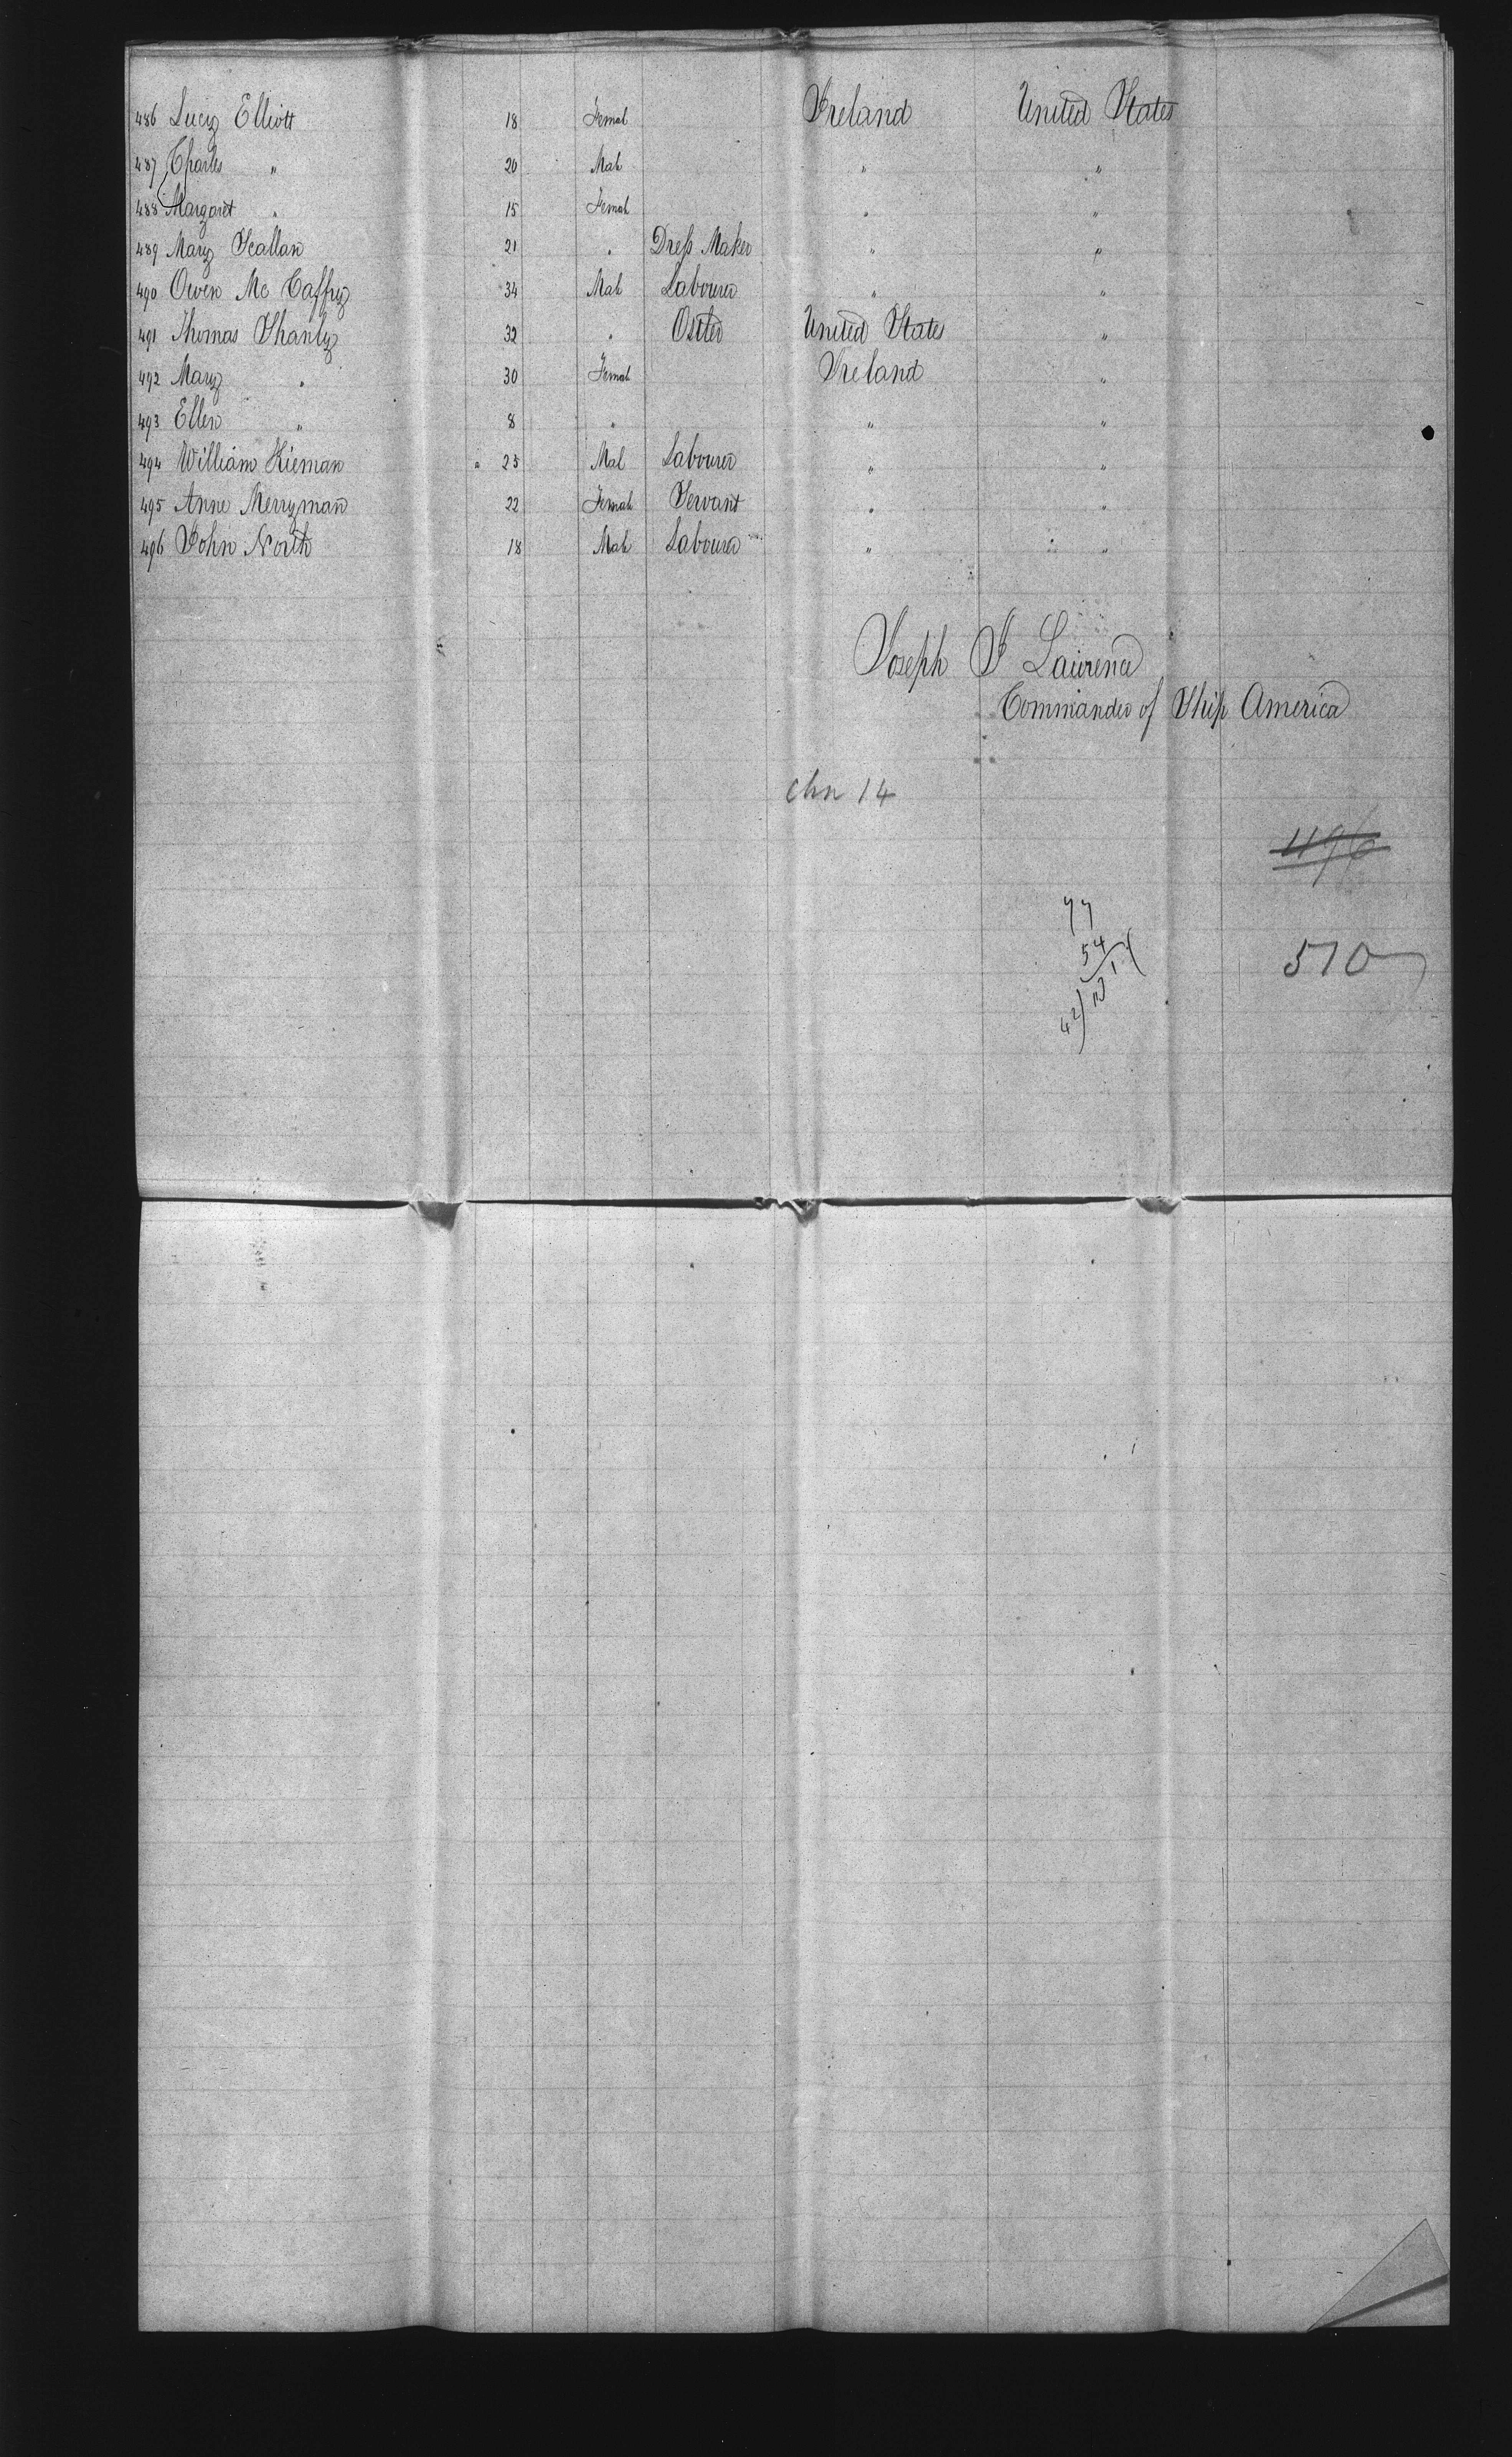 486 Lucy Elliott 18 Femal Ireland United States
487 Charles " 20 Male " "
488 Margaret " 15 Female " "
489 Mary Scallan 21 " Dress Maker " "
490 Owen Mc Caffry 34 Male Labourer " "
491 Thomas Shanly 32 " Ostler United States "
492 Mary " 30 Female Ireland "
493 Ellen " 8 " " "
494 William Kiernan 25 Mal Labourer " "
495 Anne Merryman 22 Female Servant " "
496 John North 18 Male Labourer " "
Joseph J Lawrence
Commander of Ship America
chn 14
496
54
510
42